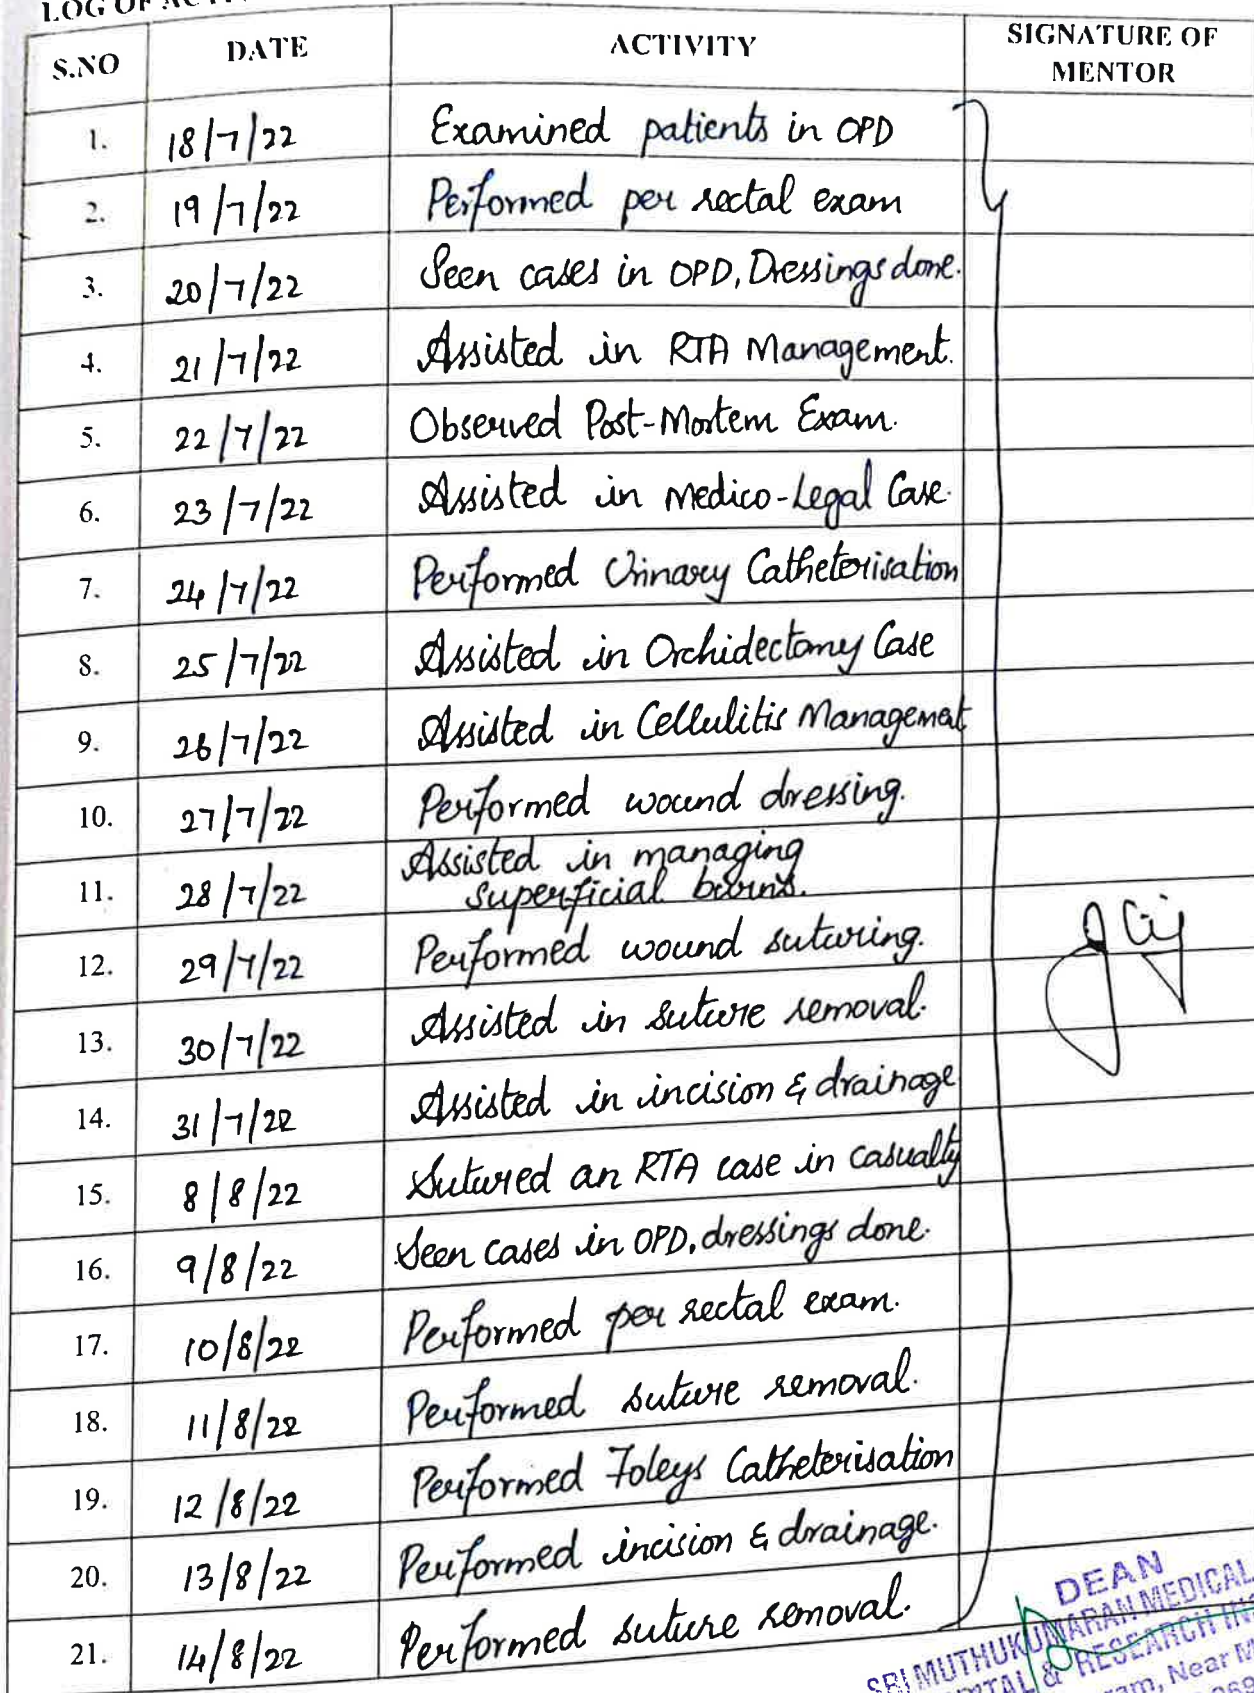 LOG OF
S.NO DATE ACTIVITY SIGNATURE OF MENTOR
1. 18/7/22 Examined patients in OPD
2. 19/7/22 Performed per rectal exam
3. 20/7/22 Seen cases in OPD, Dressings done.
4. 21/7/22 Assisted in RTA Management.
5. 22/7/22 Observed Post-Mortem Exam.
6. 23/7/22 Assisted in Medico-Legal Case.
7. 24/7/22 Performed Urinary Catheterisation
8. 25/7/22 Assisted in Orchidectomy Case
9. 26/7/22 Assisted in Cellulitis Management
10. 27/7/22 Performed wound dressing.
11. 28/7/22 Assisted in managing
superficial burns.
12. 29/7/22 Performed wound suturing.
13. 30/7/22 Assisted in suture removal.
14. 31/7/22 Assisted in incision & drainage
15. 8/8/22 Sutured an RTA case in casualty
16. 9/8/22 Seen cases in OPD, dressings done.
17. 10/8/22 Performed per rectal exam.
18. 11/8/22 Performed suture removal.
19. 12/8/22 Performed Foleys Catheterisation
20. 13/8/22 Performed incision & drainage.
21. 14/8/22 Performed suture removal.
DEAN
SRI MUTHUKUMARAN MEDICAL
& RESEARCH
Near